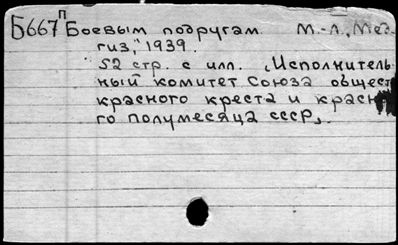 Б667 П Боевым подругам. М.-Л., "Мед-
гиз," 1939.
52 стр. с илл. (Исполнитель-
ный комитет Союза обществ
красного креста и красно-
го полумесяца СССР).